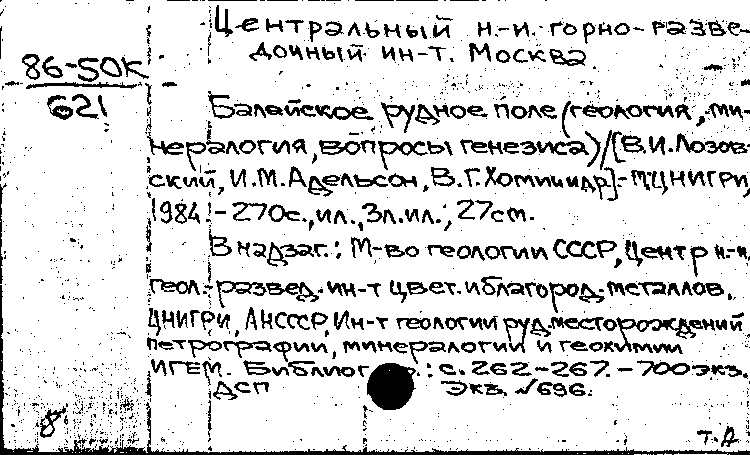 Центральный н-и. горно-разве-
дочный ин-т. Москва
86-50К
621
Балейское рудное поле (геология, ми-
нералогия, вопросы генезиса)/[В.И.Лозов-
ский, И.М.Адельсон, В.Г.Хомич и др.]-М.:ЦНИГРИ,
1984.-270с., ил., 3л.ил.; 27см.
В надзаг.: М-во геологии СССР, Центр н-и
геол.-развед. ин-т цвет. и благород. металлов.
ЦНИГРИ, АН СССР, Ин-т геологии руд. месторождений
петрографии, минералогии и геохимии
ИГЕМ. с. 262-267. - 700 экз.
ДСП Экз. №696.
8
т.д